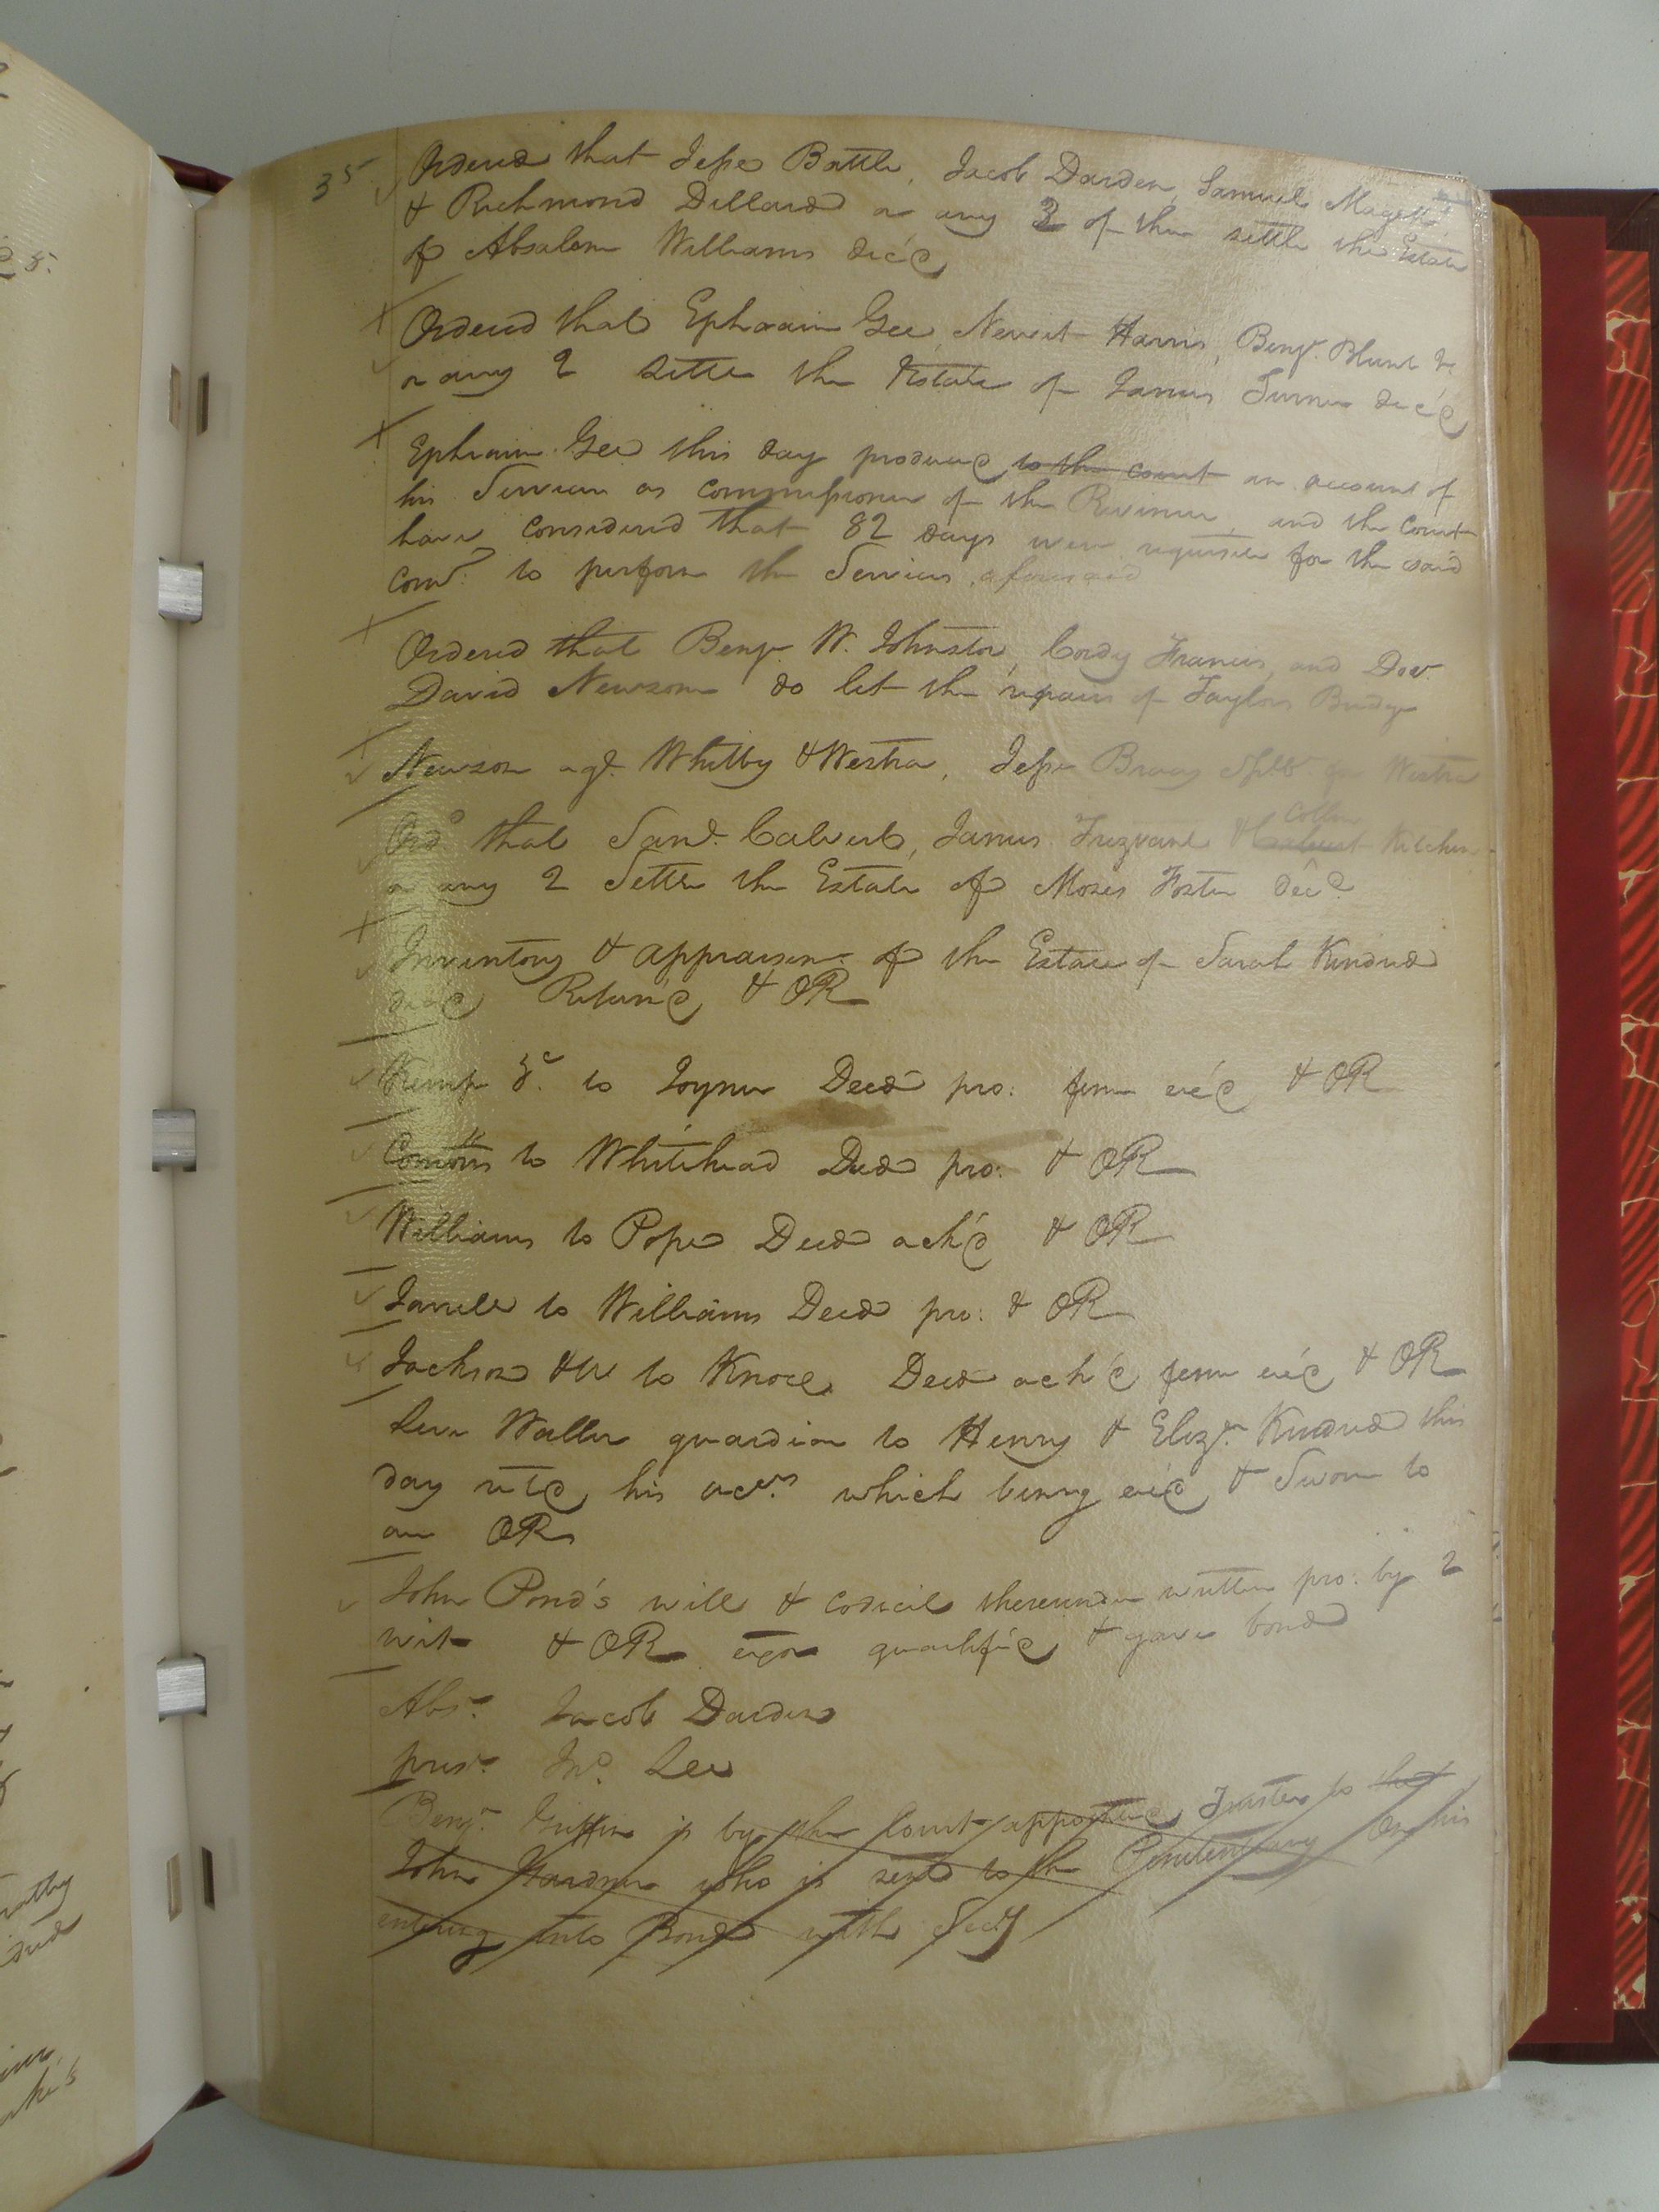 35
Ordered that Jesse Battle, Jacob Darden, Samuel Magett
& Richmond Dillard or any 3 of them settle the Estate
of Absalom Williams dec'd
Ordered that Ephraim Gee, Newit Harris, Benjn. Blunt Jr
or any 2 settle the Estate of James Turner dec'd
Ephraim Gee this day produced to the court an account of
his Services as commissioner of the Revenue, and the Court
have considered that 82 days were requisite for the said
comr. to perform the Services aforesaid
Ordered that Benjn. W. Johnston, Cordy Francis, and Docr.
David Newsom do let the repairs of Taylors Bridge
Newsom agt. Whitby & Westra, Jesse Spl b Westra
Ord that Saml. Calvert, James Trezvant & Calvert Collin Kitchen
or any 2 Settle the Estate of Moses Foster dec'd
Inventory & appraisemt. of the Estate of Sarah Kindred
dec'd Return'd & OR
Kemp &c. to Joyner Deed pro: feme ex'd & OR
to Whitehead Deed pro: & OR
Williams to Pope Deed ack'd & OR
Jarrell to Williams Deed pro: & OR
Jackson & W to Deed ack'd feme ex'd & OR
Waller guardian to Henry & Elizh. Kindred this
day retd his accts. which being ex'd & Sworn to
are OR
John Pond's will & codicil thereunder written pro: by 2
wit & OR exor qualified & gave bond
Abst. Jacob Darden
prest. Jno. Lee
Benjn. Griffin is by the Court appointed Trustee to that
John Hardner who is sent to the Penitentiary On his
entering into Bond with Secy